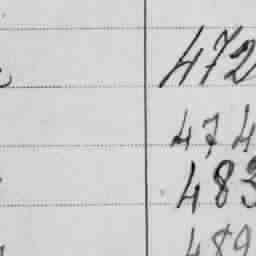 472
474
483
489